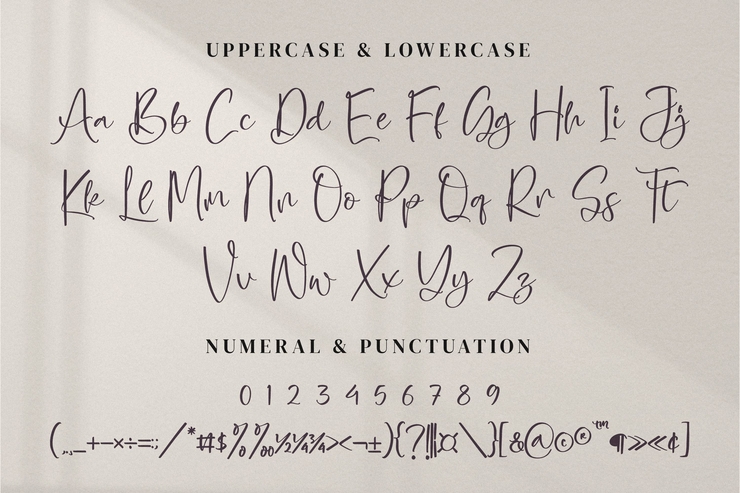 UPPERCASE & LOWERCASE
Aa Bb Cc Dd Ee Ff Gg Hh Ii Jj
Kk Ll Mm Nn Oo Pp Qq Rr Ss Tt
Vv Ww Xx Yy Zz
NUMERAL & PUNCTUATION
0 1 2 3 4 5 6 7 8 9
(.,_+−×÷=:;/*#$%‰½¼¾><¬±){?!|¦¤\}[&@©®™¶»«¢]